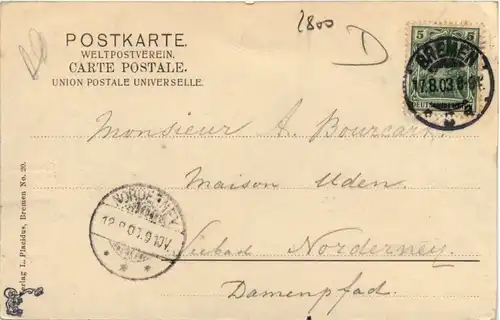 2800
D
POSTKARTE.
WELTPOSTVEREIN.
CARTE POSTALE.
UNION POSTALE UNIVERSELLE.
5 5
BREMEN
17.8.03.
Monsieur A. Bourcart
Maison Uden.
NORDERNEY
18.8.03.9-10V.
Norderney
Damenpfad.
Verlag L. Placidus, Bremen No. 20.